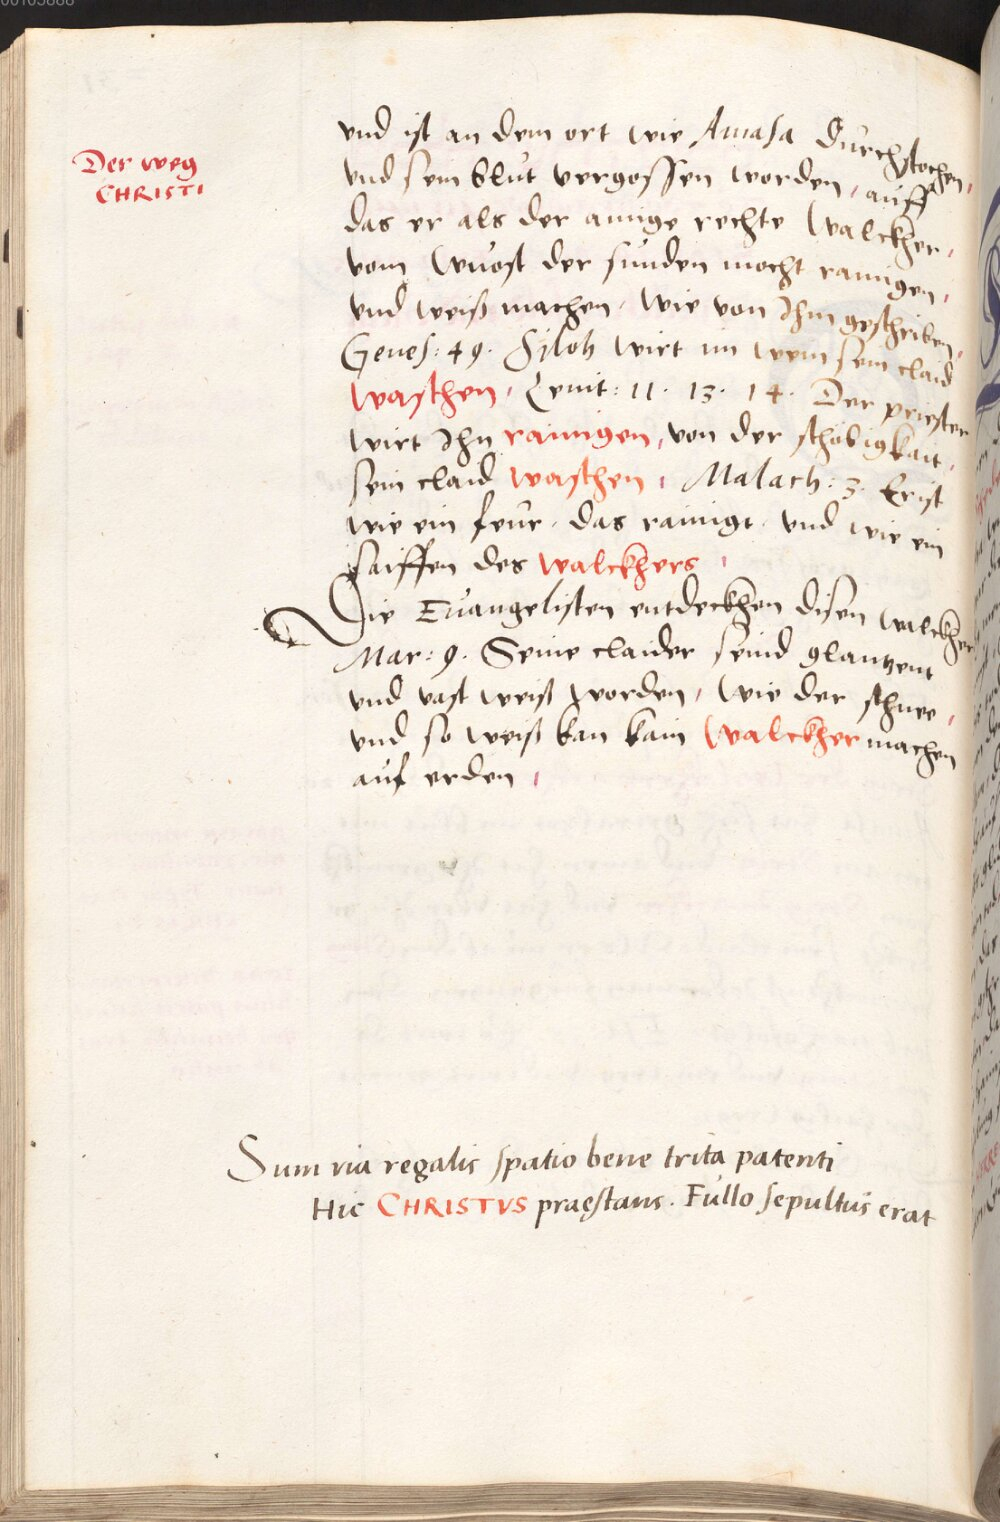 00105088
Der weg
CHRISTI
vnd ist an dem ort wie Amasa durchstochen,
vnd sein blut vergossen worden, auff
das er als der ainige rechte Walckher,
vom Wuost der sünden mocht rainigen,
vnd weiß machen. Wie von Ihm geschriben,
Genes: 49. Siloh wirt im wein sein claid
waschen, Leuit: 11. 13. 14. Der priester
wirt Ihn rainigen, von der schäbigkait,
sein claid waschen, Malach: 3. Er ist
wie ein feur, das rainigt, vnd wie ein
saiffen des walckhers,
Die Euangelisten entdeckhen disen walckher
Mar: 9. Seine claider seind glantzent
vnd vast weiß worden, Wie der schnee,
vnd so weiß kan kain Walckher machen
auf erden,
Sum via regalis spatio bene trita patenti
Hic CHRISTVS praestans. Fullo sepultus erat